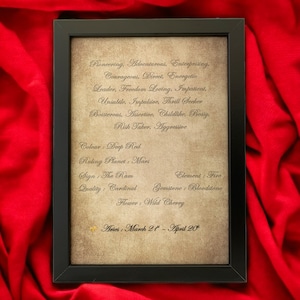 Pioneering, Adventurous, Enterprising,
Courageous, Direct, Energetic
Leader, Freedom Loving, Impatient,
Unsubtle, Impulsive, Thrill Seeker
Boisterous, Assertive, Childlike, Bossy,
Risk Taker, Aggressive
Colour : Deep Red
Ruling Planet : Mars
Sign : The Ram Element : Fire
Quality : Cardinal Gemstone : Bloodstone
Flower : Wild Cherry
Aries : March 21st ~ April 20th